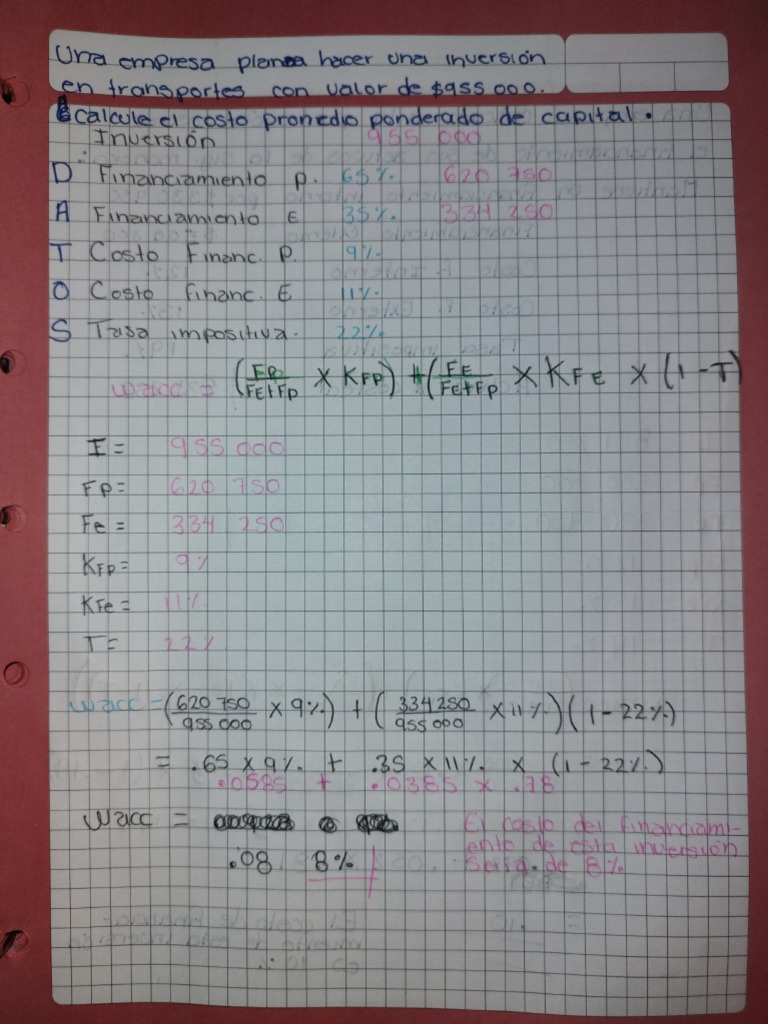 Una empresa planea hacer una inversión
en transportes con valor de $955 000.
Calcule el costo promedio ponderado de capital.
Inversión 955 000
D Financiamiento P. 65% 620 750
A Financiamiento E 35% 334 250
T Costo Financ. P. 9%
O Costo Financ. E 11%
S Tasa impositiva. 22%
Wacc = (FP/FE+FP X KFP) + (FE/FE+FP X KFE X (1-T)
I= 955 000
FP= 620 750
Fe= 334 250
KFP= 9%
KFe= 11%
T= 22%
Wacc =(620 750/955 000 x 9%) + (334 250/955 000 x 11%)(1-22%)
= .65 x 9% + .35 x 11% x (1-22%)
.0585 + .0385 x .78
Wacc =
.08 8%
El costo del financiami-
ento de esta inversión
sería de 8%